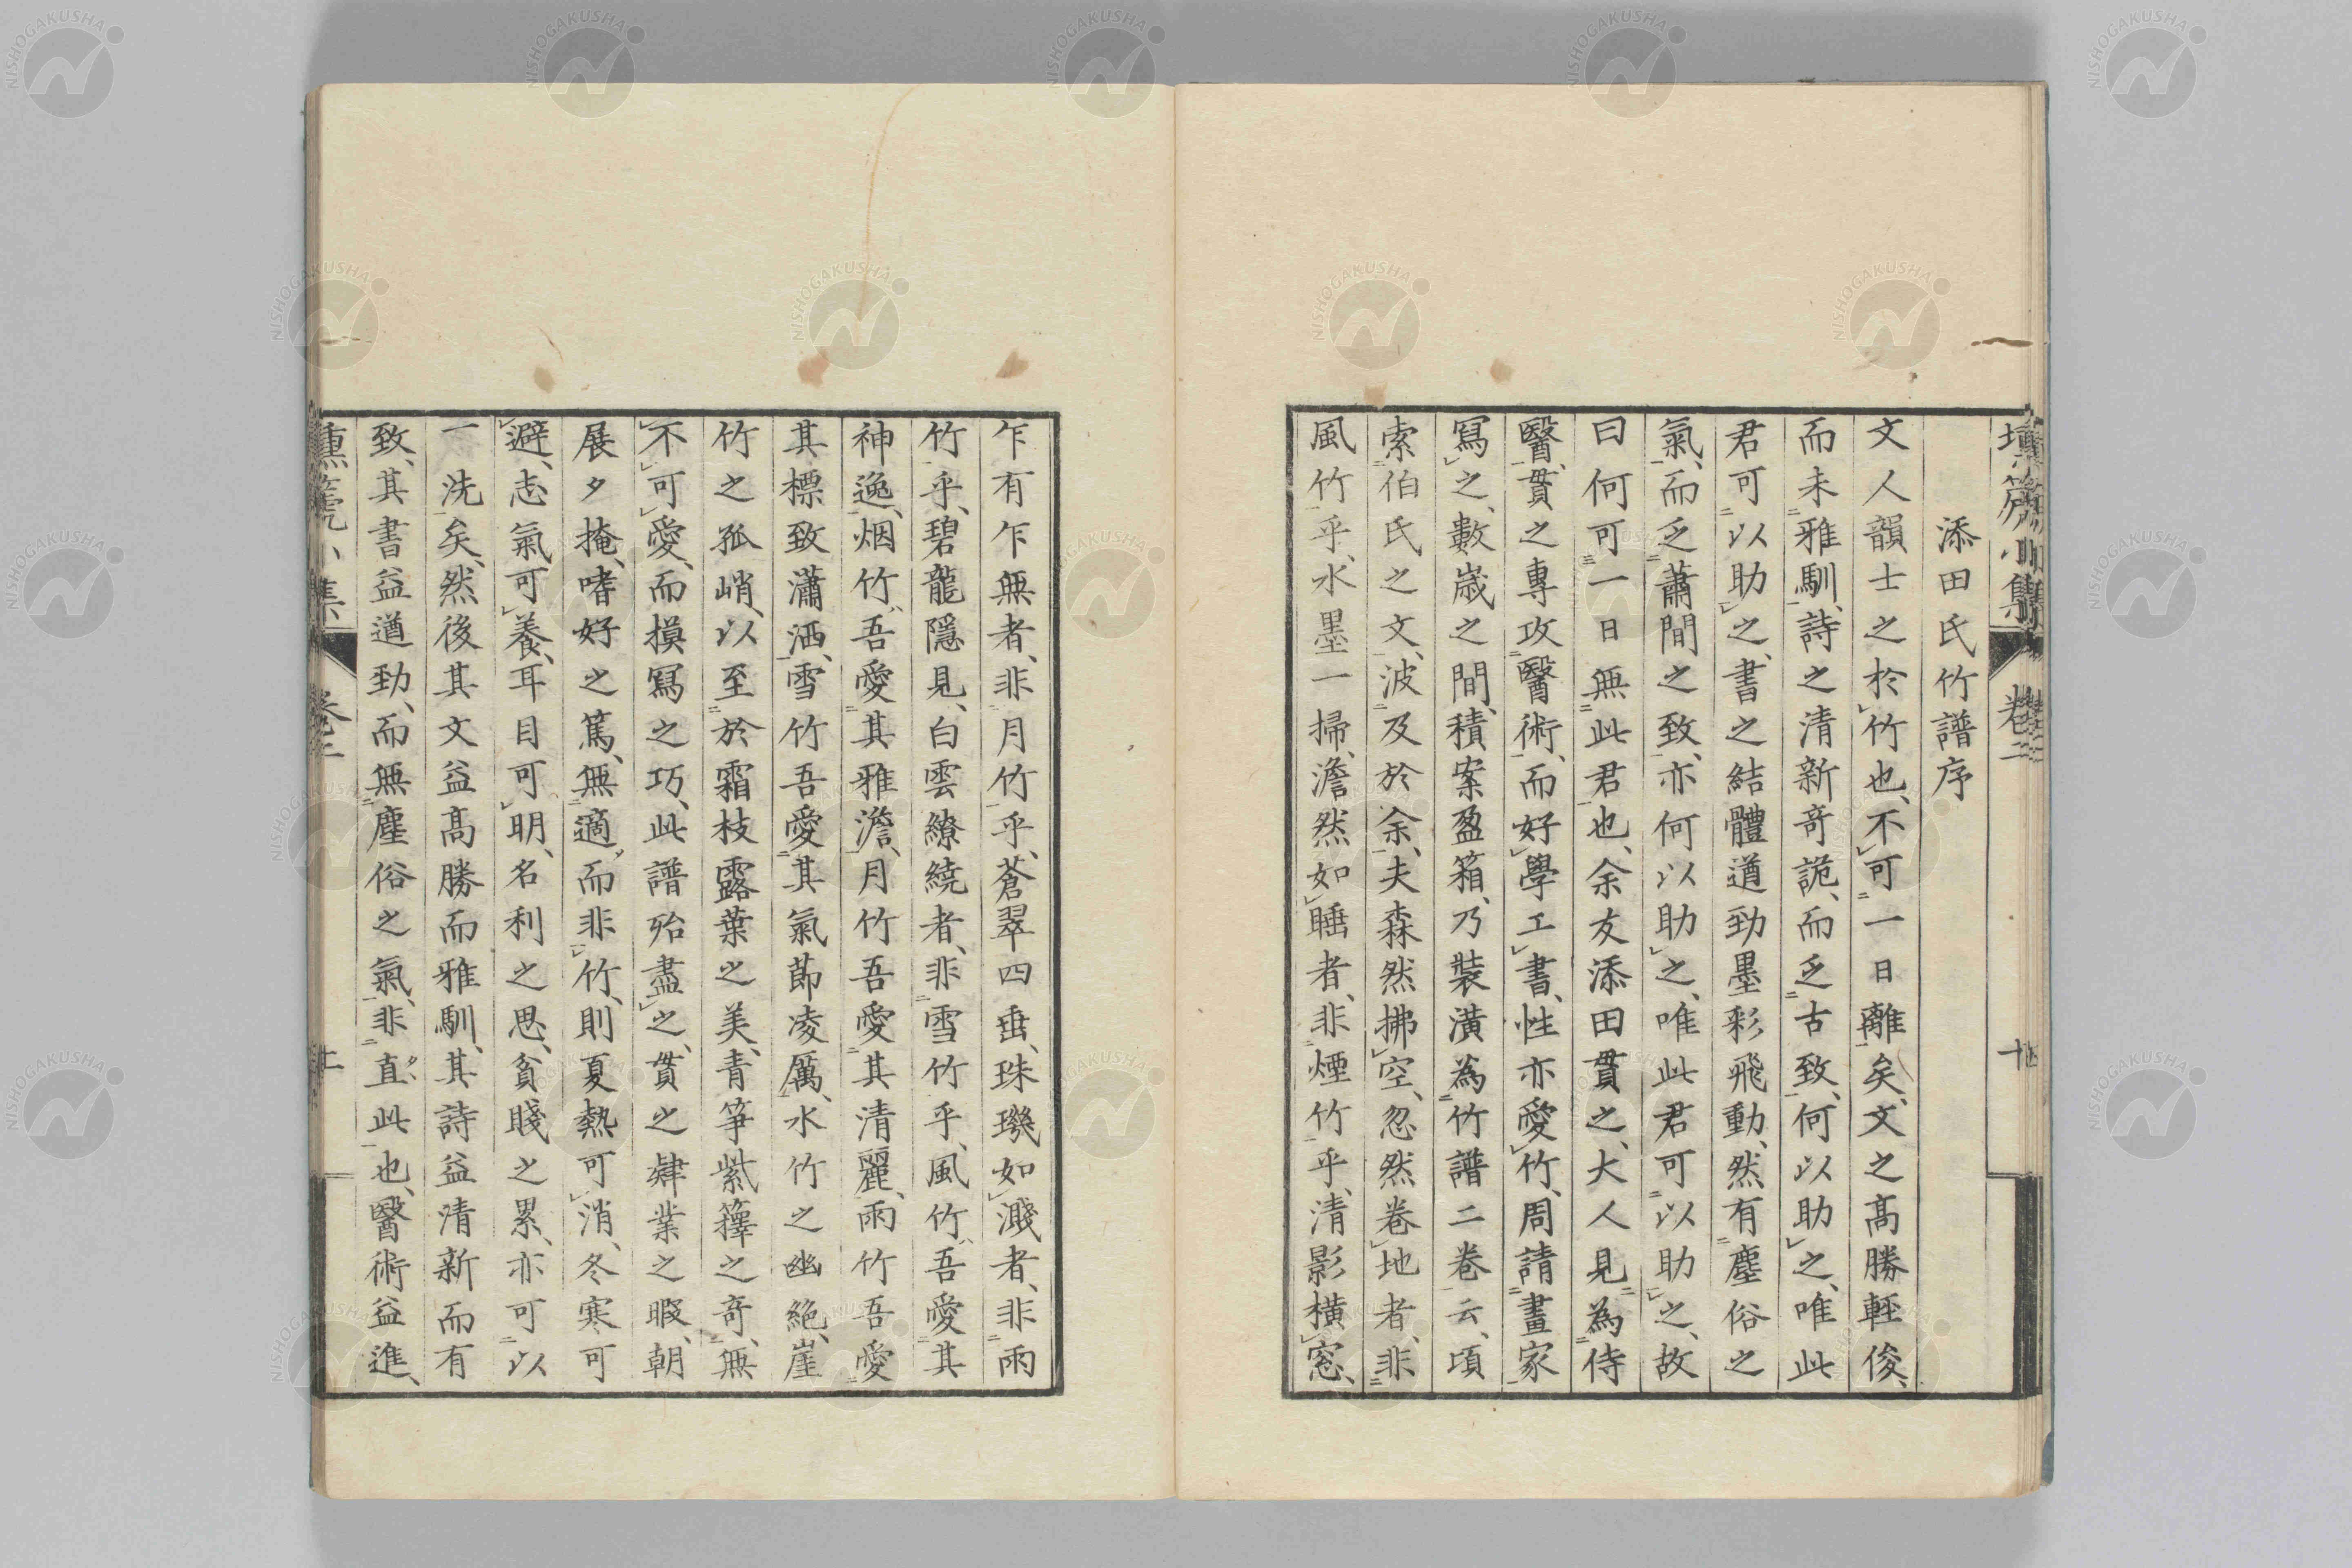 添田氏竹譜序
文人韻士之於竹也、不可一日離矣、文之高勝輕俊、
而未雅馴、詩之清新奇詭、而乏古致、何以助之、唯此
君可以助之、書之結體遒勁墨彩飛動、然有塵俗之
氣、而乏蕭閒之致、亦何以助之、唯此君可以助之、故
曰何可一日無此君也、余友添田貫之、大人見為侍
醫、貫之專攻醫術、而好學工書、性亦愛竹、周請畫家
寫之、數歲之間、積案盈箱、乃裝潢為竹譜二卷云、頃
索伯氏之文、波及於余、夫森然拂空、忽然卷地者、非
風竹乎、水墨一掃、澹然如睡者、非煙竹乎、清影橫窓、
乍有乍無者、非月竹乎、蒼翠四垂、珠璣如濺者、非雨
竹乎、碧龍隱見、白雲繚繞者、非雪竹乎、風竹、吾愛其
神逸、烟竹、吾愛其雅澹、月竹吾愛其清麗、雨竹吾愛
其標致瀟洒、雪竹吾愛其氣節凌厲、水竹之幽絕、崖
竹之孤峭、以至於霜枝露葉之美、青筝紫籜之奇、無
不可愛、而摸寫之巧、此譜殆盡之、貫之肄業之暇、朝
展夕掩、嗜好之篤、無適而非竹、則夏熱可消、冬寒可
避、志氣可養、耳目可明、名利之思、貧賤之累、亦可以
一洗矣、然後其文益高勝而雅馴、其詩益清新而有
致、其書益遒勁、而無塵俗之氣、非直此也、醫術益進、
壎篪小集 卷二